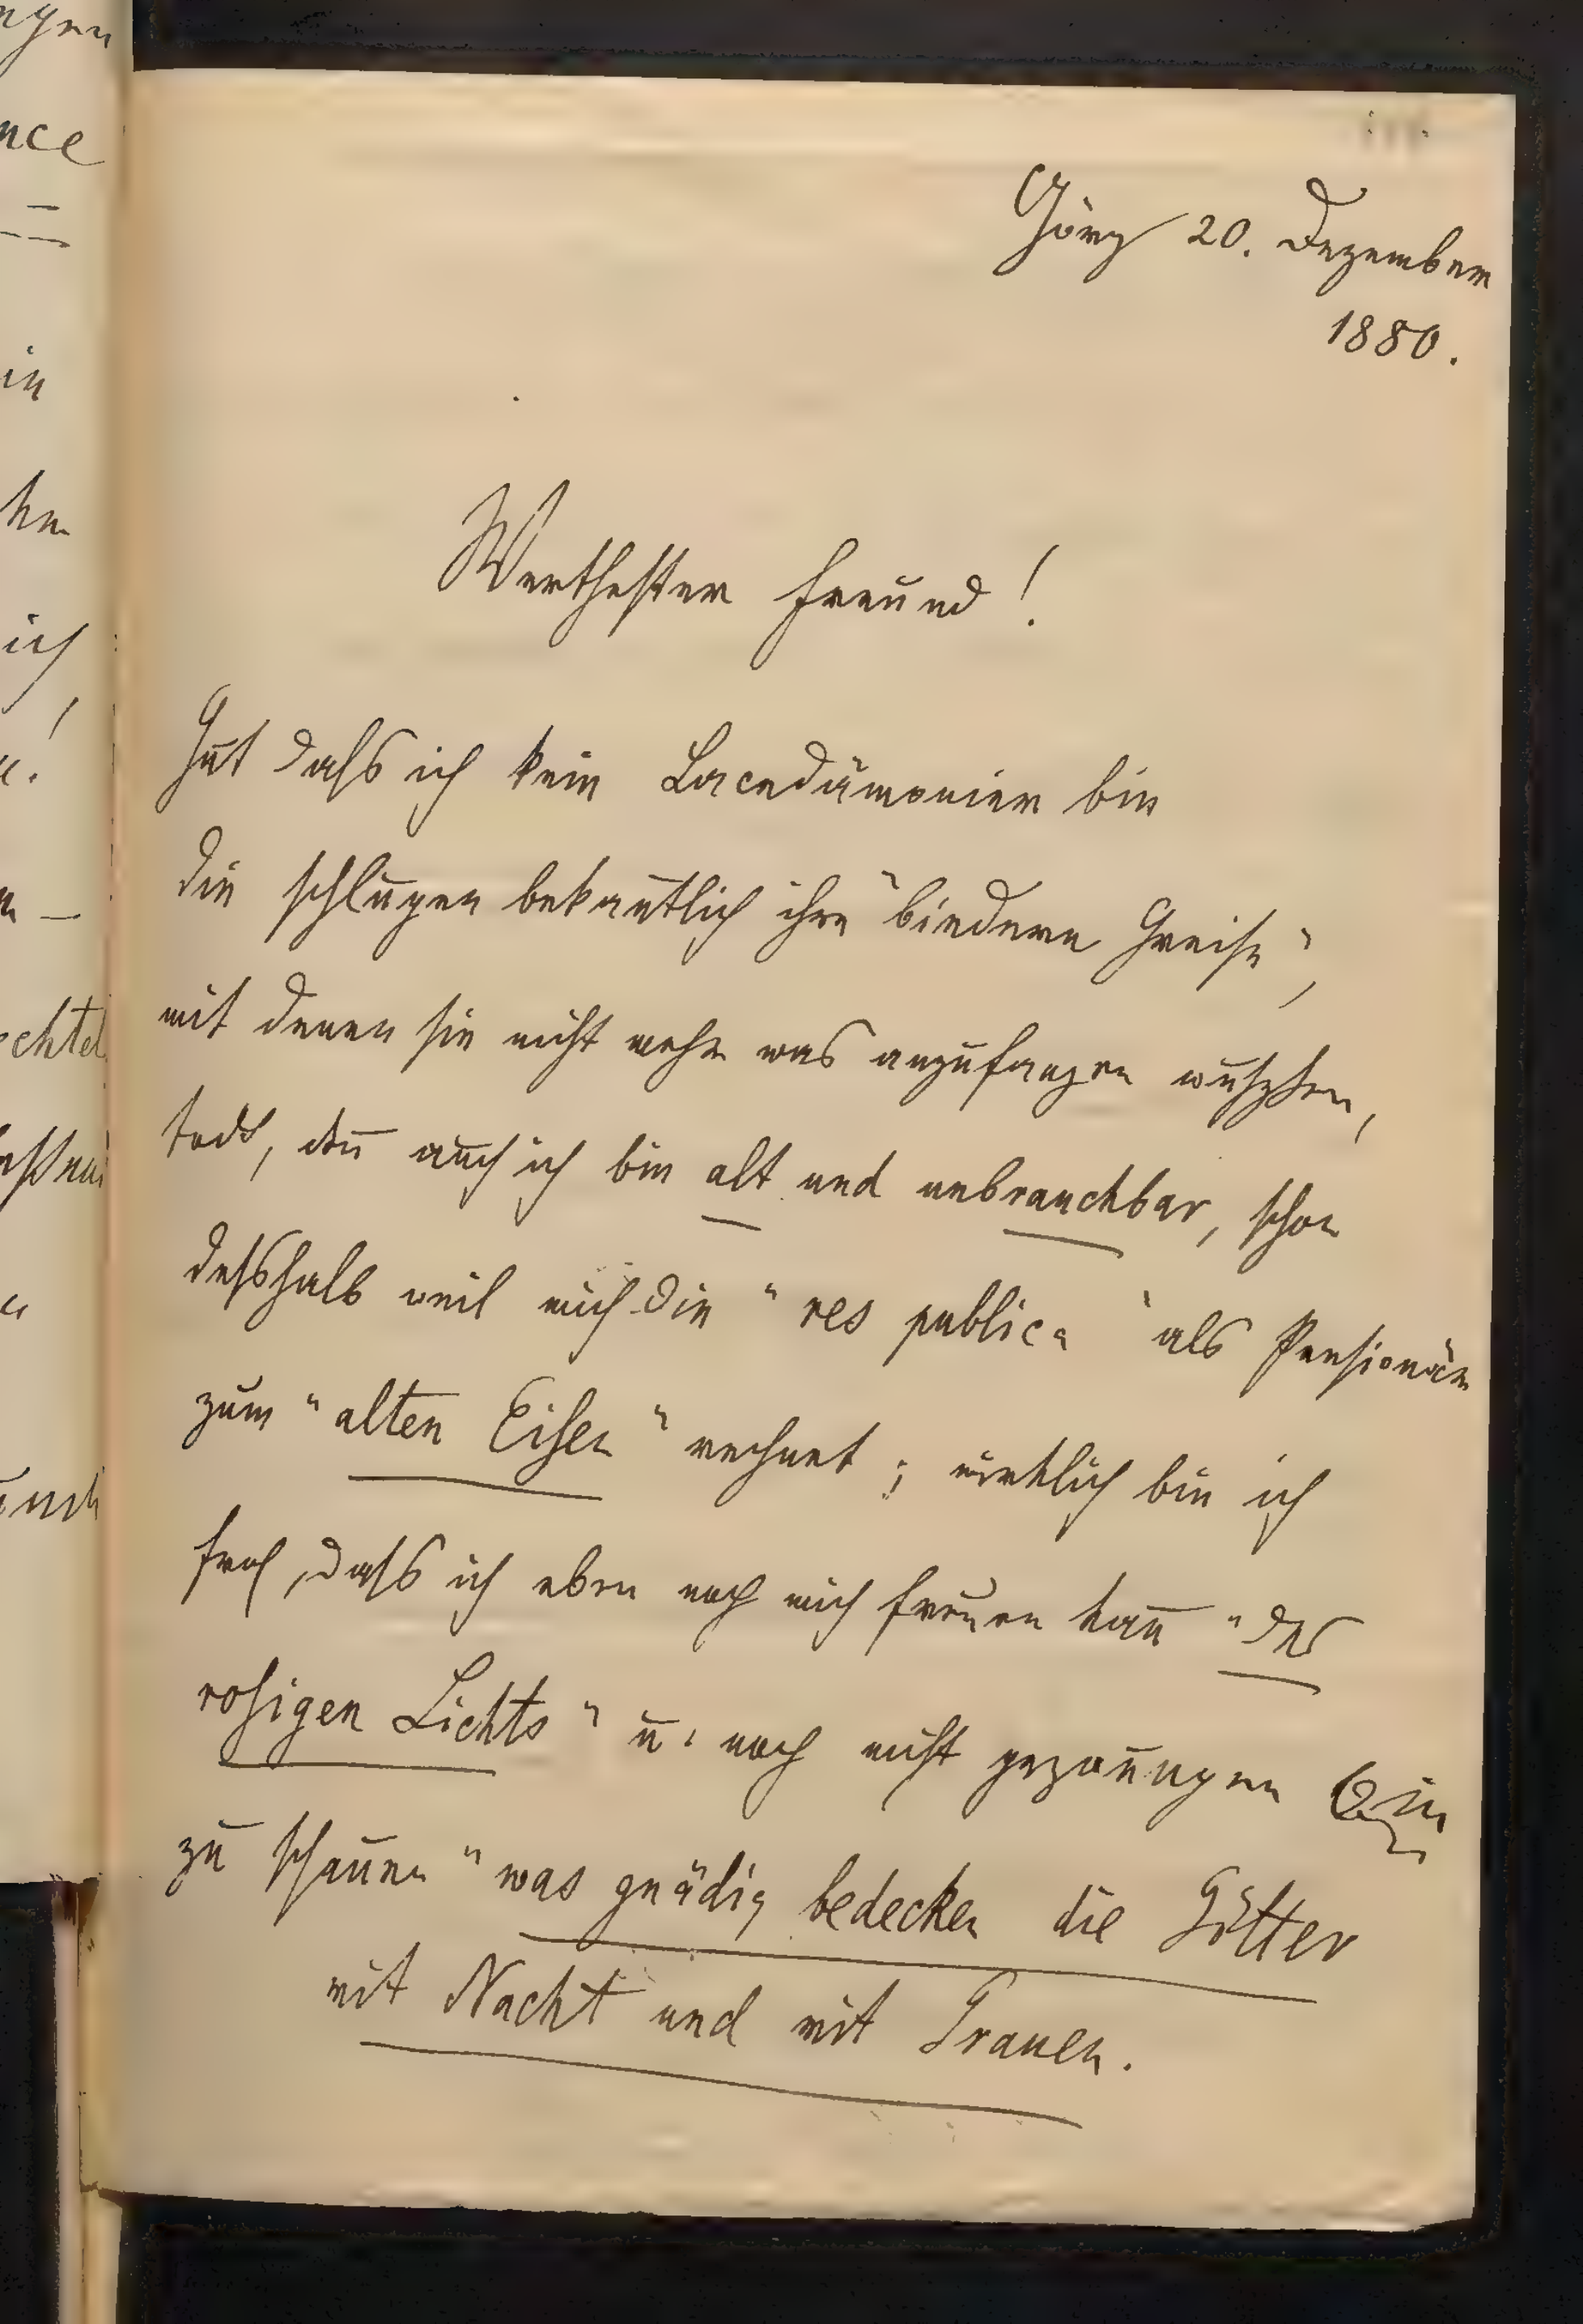 Görz 20. Dezember
1880.
Werthester Freund!
Gut dass ich kein Lacedämonier bin
die schlugen bekañtlich ihre "biedere Greise",
mit denen sie nicht mehr was anzufangen wußten,
todt, deñ auch ich bin alt und unbrauchbar, schon
desshalb weil mich die "res publica" als Pensionär
zum "alten Eisen" rechnet; wirklich bin ich
froh, dass ich eben noch mich freuen kañ "des
rosigen Lichts" u. noch nicht gezwungen bin
zu schauen "was gnädig bedecken die Götter
mit Nacht und mit Grauen.